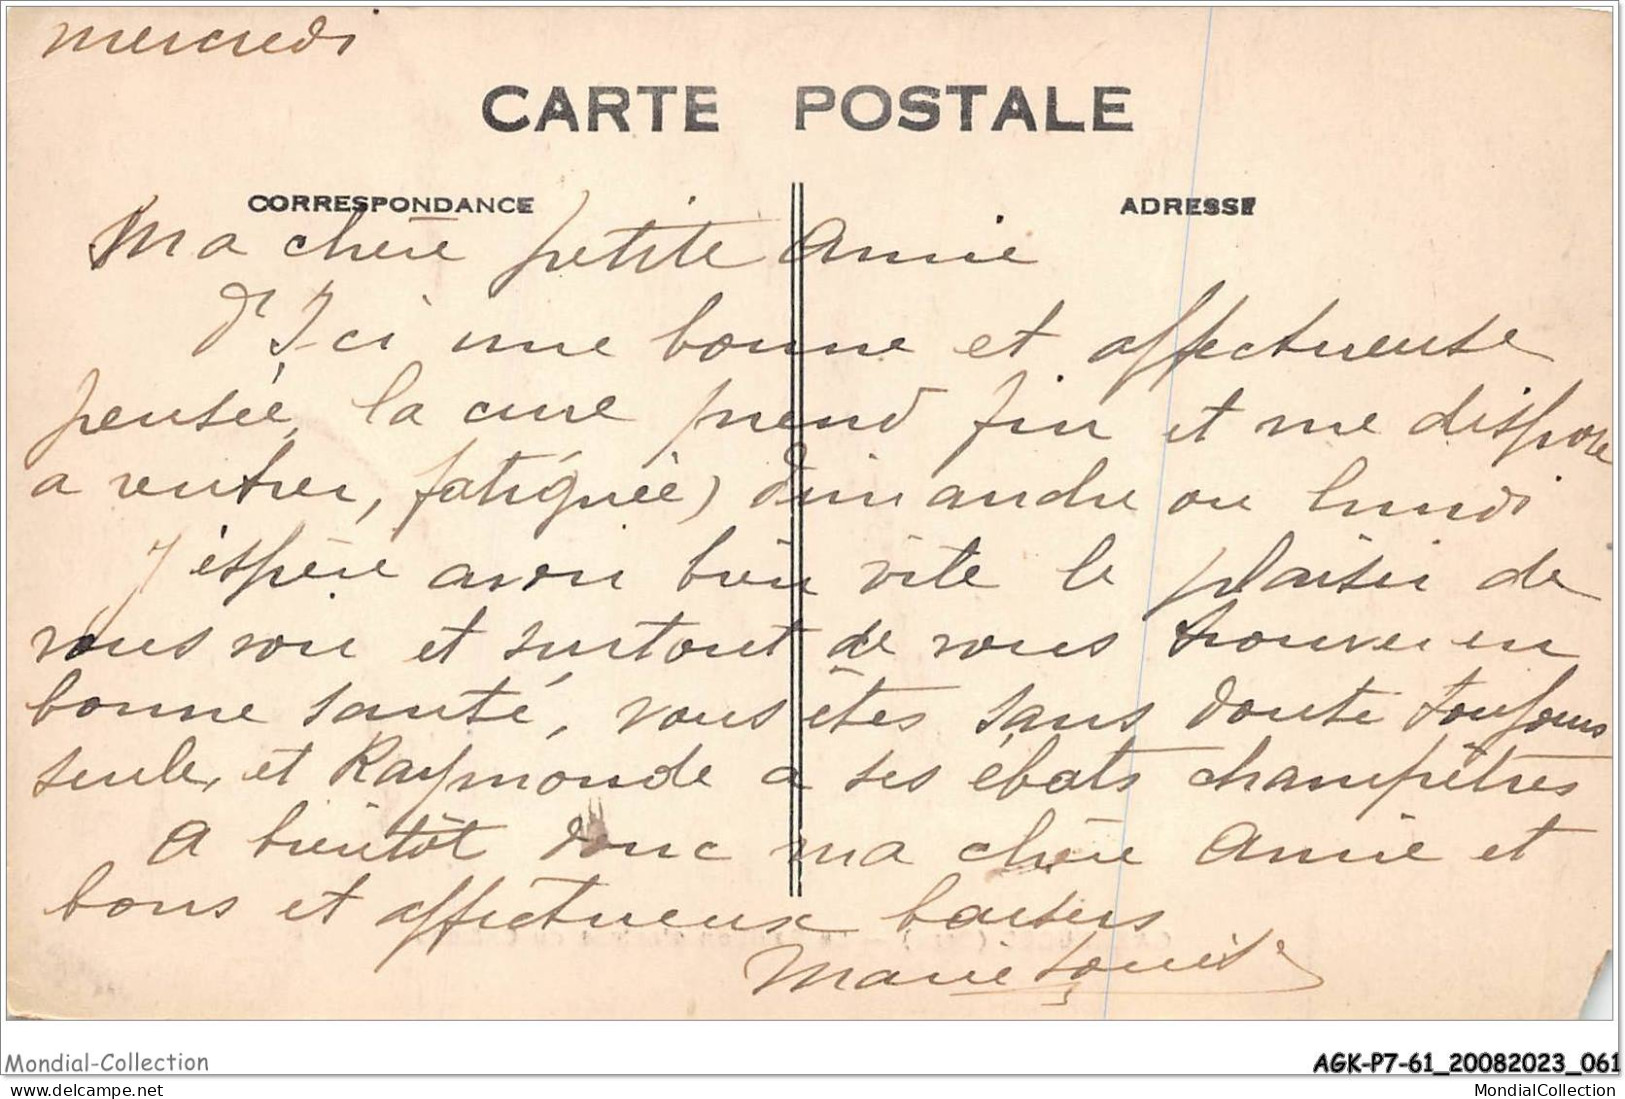 mercredi
CARTE POSTALE
CORRESPONDANCE
ADRESSE
Ma chère petite Annie
d'Ici une bonne et affectueuse
pensée, la cure prend fin et me dispose
a rentrer, fatiguée, dimanche ou lundi
J'espère avoir bien vite le plaisir de
vous voir et surtout de vous trouver en
bonne santé, vous êtes sans doute toujours
seule, et Raymonde a ses ébats champêtres
A bientôt donc ma chère Annie et
bons et affectueux baisers
Marie Louise
Mondial-Collection
AGK-P7-61_20082023_061
www.delcampe.net
MondialCollection